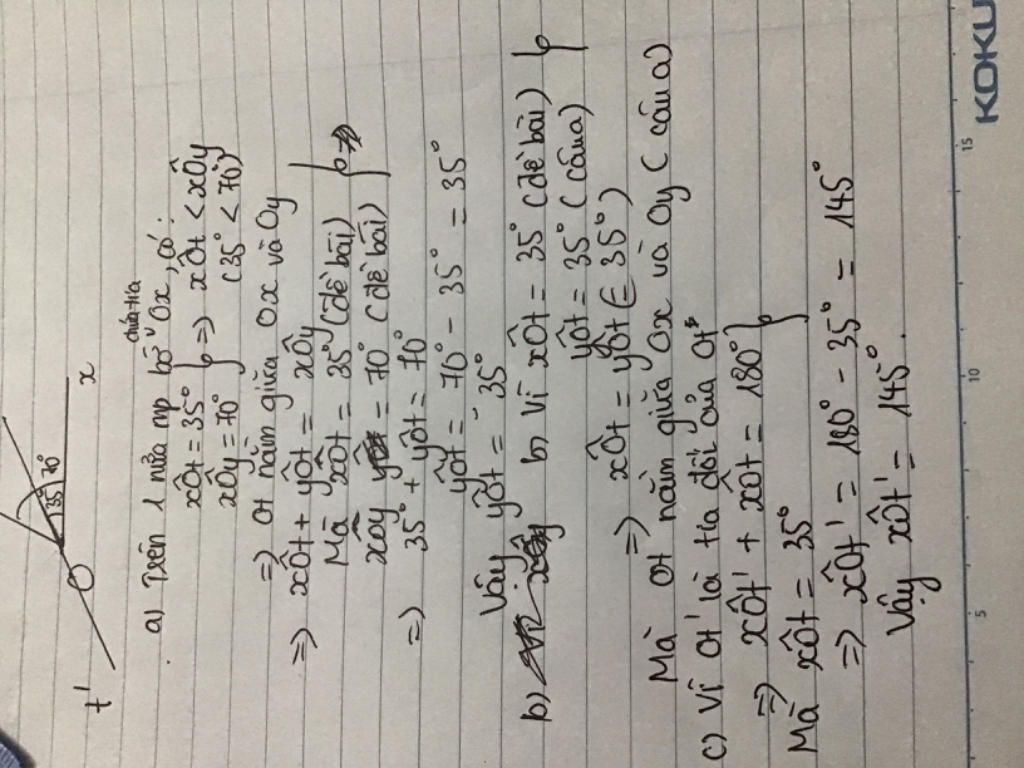 t'
O
35°
70°
x
chứa tia
a) Trên 1 nửa mp bờ Ox, có:
xÔt = 35° } => xÔt < xÔy
xÔy = 70° (35° < 70°)
=> Ot nằm giữa Ox và Oy
=> xÔt + yÔt = xÔy
Mà xÔt = 35° (đề bài) }
xÔy = 70° (đề bài)
=> 35° + yÔt = 70°
yÔt = 70° - 35° = 35°
Vậy yÔt = 35°
b) b) Vì xÔt = 35° (đề bài) }
yÔt = 35° (câu a)
=> xÔt = yÔt (= 35°)
Mà Ot nằm giữa Ox và Oy (câu a)
c) Vì Ot' là tia đối của Ot
=> xÔt' + xÔt = 180° }
Mà xÔt = 35°
=> xÔt' = 180° - 35° = 145°
Vậy xÔt' = 145°.
5 10 15
KOKU